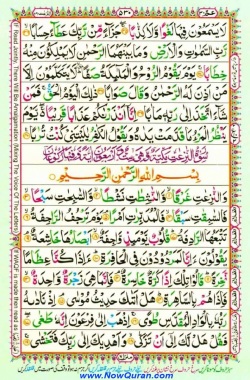 ٥٣٠
لَا يَسْمَعُوْنَ فِيْهَا لَغْوًا وَّلَا كِذّٰبًا جَزَآءً مِّنْ رَّبِّكَ عَطَآءً حِسَابًا
رَّبِّ السَّمٰوٰتِ وَالْاَرْضِ وَمَا بَيْنَهُمَا الرَّحْمٰنِ لَا يَمْلِكُوْنَ مِنْهُ
خِطَابًا يَوْمَ يَقُوْمُ الرُّوْحُ وَالْمَلٰٓئِكَةُ صَفًّا لَّا يَتَكَلَّمُوْنَ اِلَّا
مَنْ اَذِنَ لَهُ الرَّحْمٰنُ وَقَالَ صَوَابًا ذٰلِكَ الْيَوْمُ الْحَقُّ فَمَنْ
شَآءَ اتَّخَذَ اِلٰى رَبِّهٖ مَاٰبًا اِنَّآ اَنْذَرْنٰكُمْ عَذَابًا قَرِيْبًا يَّوْمَ
يَنْظُرُ الْمَرْءُ مَا قَدَّمَتْ يَدٰهُ وَيَقُوْلُ الْكٰفِرُ يٰلَيْتَنِيْ كُنْتُ تُرٰبًا
بِسْمِ اللّٰهِ الرَّحْمٰنِ الرَّحِيْمِ
وَالنّٰزِعٰتِ غَرْقًا وَّالنّٰشِطٰتِ نَشْطًا وَّالسّٰبِحٰتِ سَبْحًا
فَالسّٰبِقٰتِ سَبْقًا فَالْمُدَبِّرٰتِ اَمْرًا يَوْمَ تَرْجُفُ الرَّاجِفَةُ
تَتْبَعُهَا الرَّادِفَةُ قُلُوْبٌ يَّوْمَئِذٍ وَّاجِفَةٌ اَبْصَارُهَا خَاشِعَةٌ
يَقُوْلُوْنَ ءَاِنَّا لَمَرْدُوْدُوْنَ فِى الْحَافِرَةِ ءَاِذَا كُنَّا عِظَامًا
نَّخِرَةً قَالُوْا تِلْكَ اِذًا كَرَّةٌ خَاسِرَةٌ فَاِنَّمَا هِيَ زَجْرَةٌ وَّاحِدَةٌ
فَاِذَا هُمْ بِالسَّاهِرَةِ هَلْ اَتٰىكَ حَدِيْثُ مُوْسٰى اِذْ نَادٰىهُ
رَبُّهٗ بِالْوَادِ الْمُقَدَّسِ طُوًى اِذْهَبْ اِلٰى فِرْعَوْنَ اِنَّهٗ طَغٰى
فَقُلْ هَلْ لَّكَ اِلٰٓى اَنْ تَزَكّٰى وَاَهْدِيَكَ اِلٰى رَبِّكَ فَتَخْشٰى
www.NowQuran.com